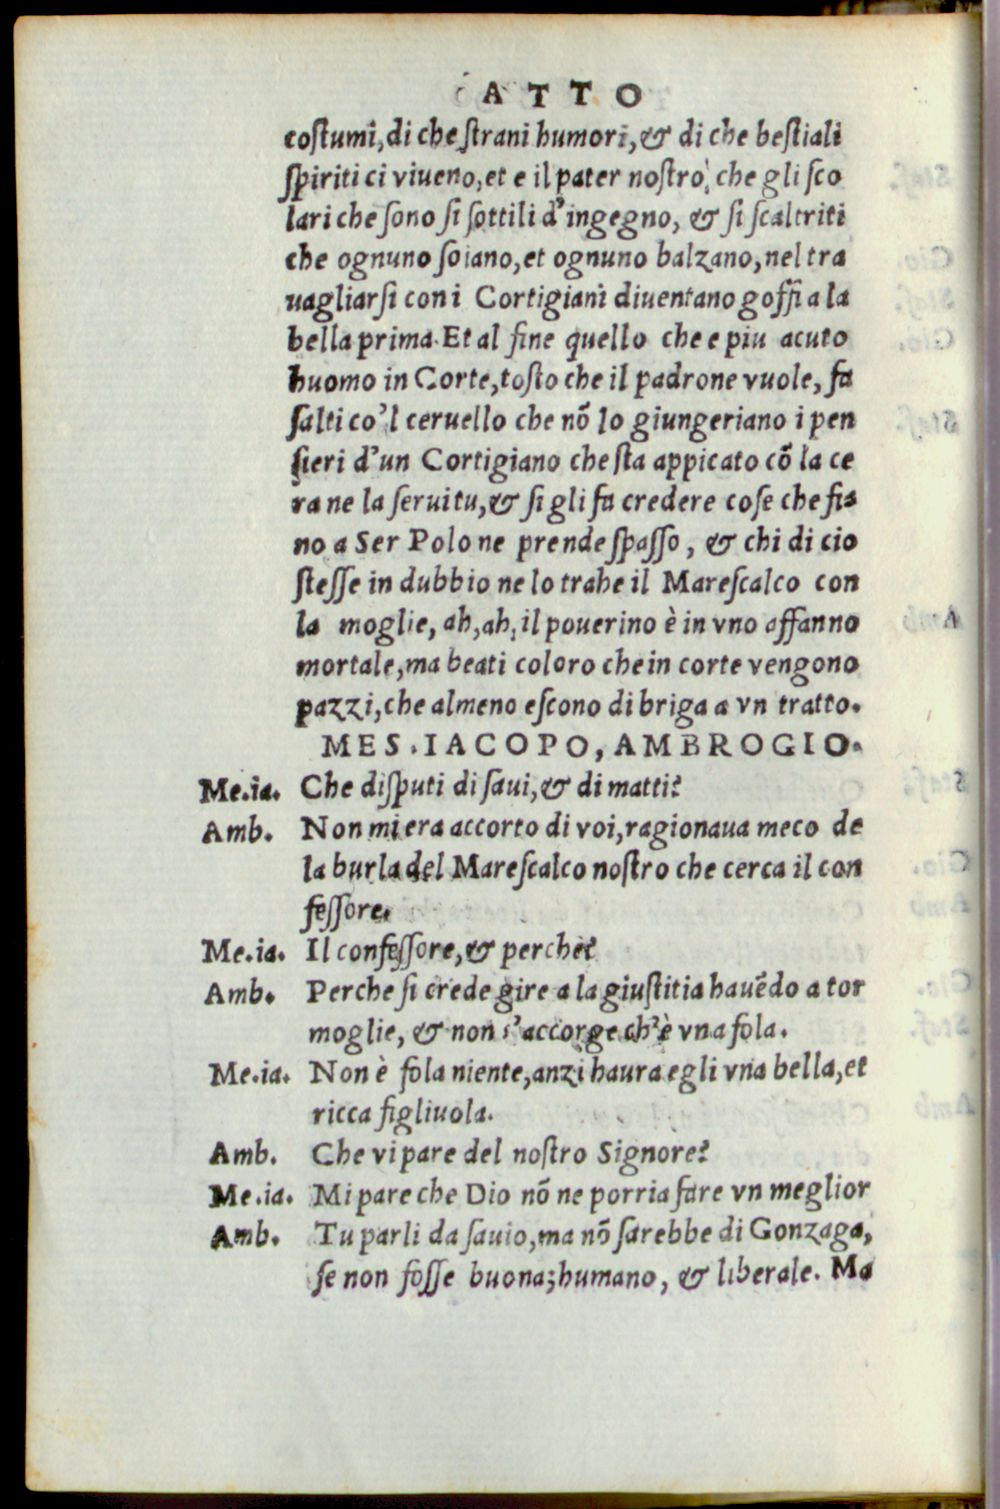 ATTO
costumi, di che strani humori, & di che bestiali
spiriti ci viueno, et e il pater nostro, che gli sco
lari che sono si sottili d'ingegno, & si scaltriti
che ognuno soiano, et ognuno balzano, nel tra
uagliarsi con i Cortigiani diuentano goffi a la
bella prima. Et al fine quello che e piu acuto
huomo in Corte, tosto che il padrone vuole, fa
salti co'l ceruello che nõ lo giungeriano i pen
sieri d'un Cortigiano che sta appicato cõ la ce
ra ne la seruitu, & si gli fa credere cose che fia
no a Ser Polo ne prende spasso, & chi di cio
stesse in dubbio ne lo trahe il Marescalco con
la moglie, ah, ah, il pouerino è in vno affanno
mortale, ma beati coloro che in corte vengono
pazzi, che almeno escono di briga a vn tratto.
MES. IACOPO, AMBROGIO.
Me.ia. Che disputi di saui, & di matti?
Amb. Non mi era accorto di voi, ragionaua meco de
la burla del Marescalco nostro che cerca il con
fessore.
Me.ia. Il confessore, & perche?
Amb. Perche si crede gire a la giustitia hauẽdo a tor
moglie, & non s'accorge ch'è vna fola.
Me.ia. Non è fola niente, anzi haura egli vna bella, et
ricca figliuola.
Amb. Che vi pare del nostro Signore?
Me.ia. Mi pare che Dio nõ ne porria fare vn meglior
Amb. Tu parli da sauio, ma nõ sarebbe di Gonzaga,
se non fosse buona; humano, & liberale. Ma